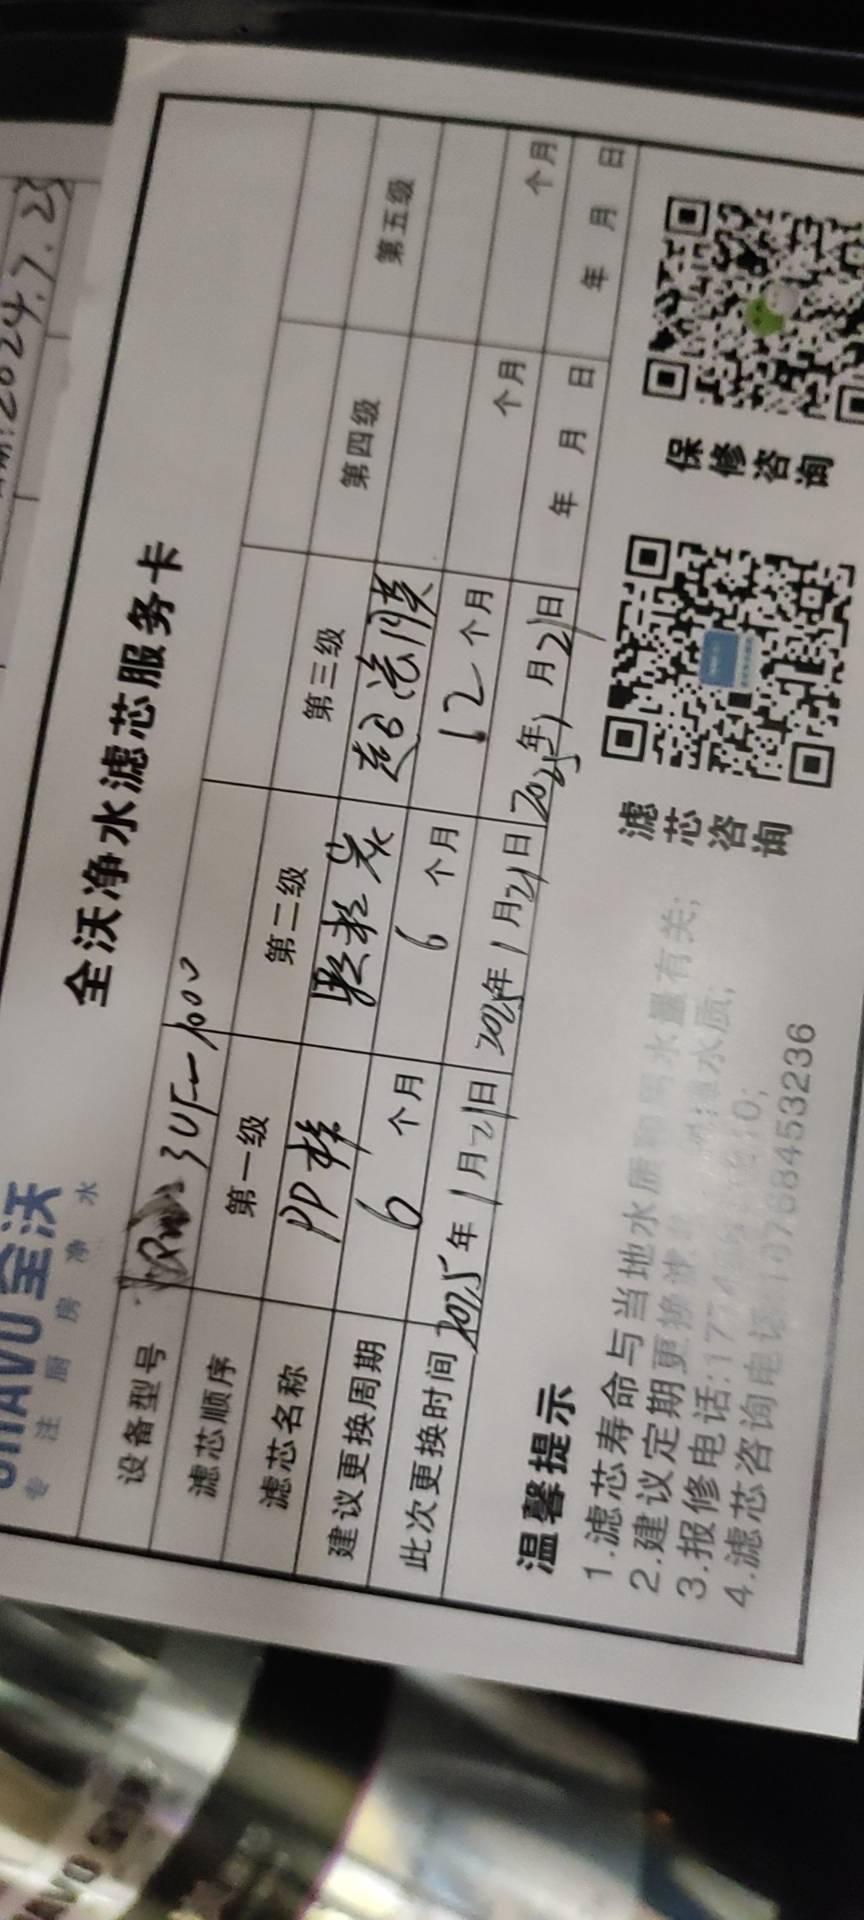 2024.7.23
全沃
专注厨房净水
全沃净水滤芯服务卡
设备型号 3UF-1000
滤芯顺序 第一级 第二级 第三级 第四级 第五级
滤芯名称 PP棉 颗粒炭 超滤膜
建议更换周期 6个月 6个月 12个月 个月 个月
此次更换时间 2025年1月21日 2025年1月21日 2025年1月21日 年月日 年月日
温馨提示
1.滤芯寿命与当地水质和用水量有关;
2.建议定期更换 净水质;
3.报修电话:
4.滤芯咨询电话: 68453236
滤芯咨询
保修咨询